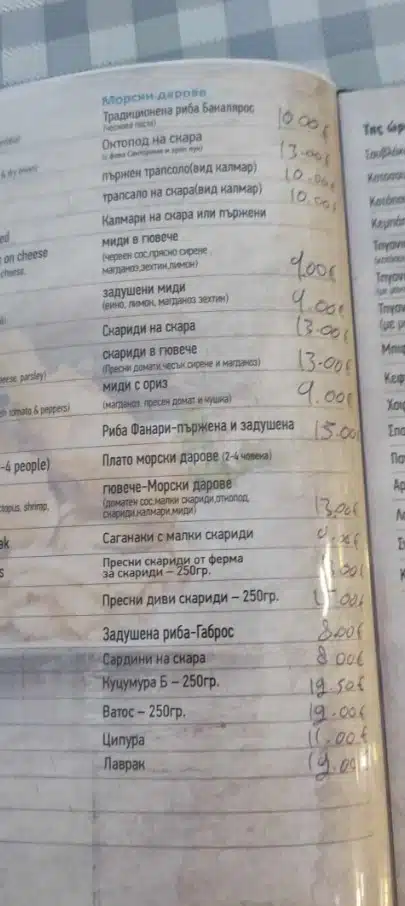 Морски дарове
Традиционена риба Бакалярос 10.00€
(чеснова паста)
Октопод на скара 13.00€
пържен трапсоло(вид калмар) 10.00€
трапсало на скара(вид калмар) 10.00€
Калмари на скара или пържени
миди в гювече 9.00€
(червен сос,прясно сирене,
магданоз,зехтин,лимон)
задушени миди 9.00€
(вино, лимон, магданоз зехтин)
Скариди на скара 13.00€
скариди в гювече 13.00€
(Пресни домати,чесън,сирене и магданоз)
миди с ориз 9.00€
(магданоз, пресен домат и чушка)
Риба Фанари-пържена и задушена
Плато морски дарове (2-4 човека)
гювече-Морски дарове 13.00€
(доматен сос,малки скариди,октопод,
скариди,калмари,миди)
Саганаки с малки скариди
Пресни скариди от ферма
за скариди – 250гр.
Пресни диви скариди – 250гр.
Задушена риба-Габрос 8.00€
Сардини на скара 8.00€
Куцумура Б – 250гр.
Ватос – 250гр.
Ципура 11.00€
Лаврак
on cheese
cheese,
eese, parsley)
sh tomato & peppers)
-4 people)
ctopus, shrimp,
Της ώρ